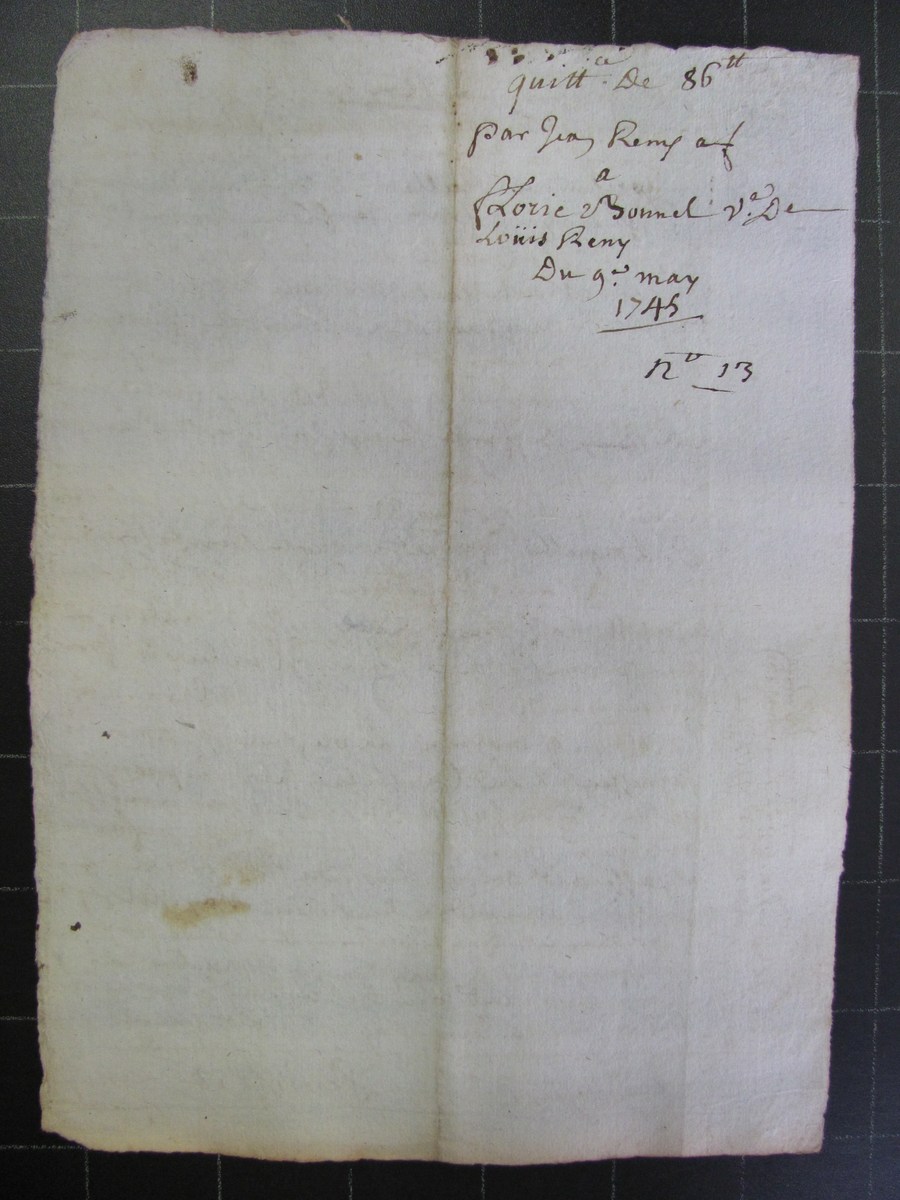 quitt.ce De 86 tt
par Jean Remy
a
fflorie Bonnel v.e De
Loüis Remy
Du 9.e may
1745
n° 13